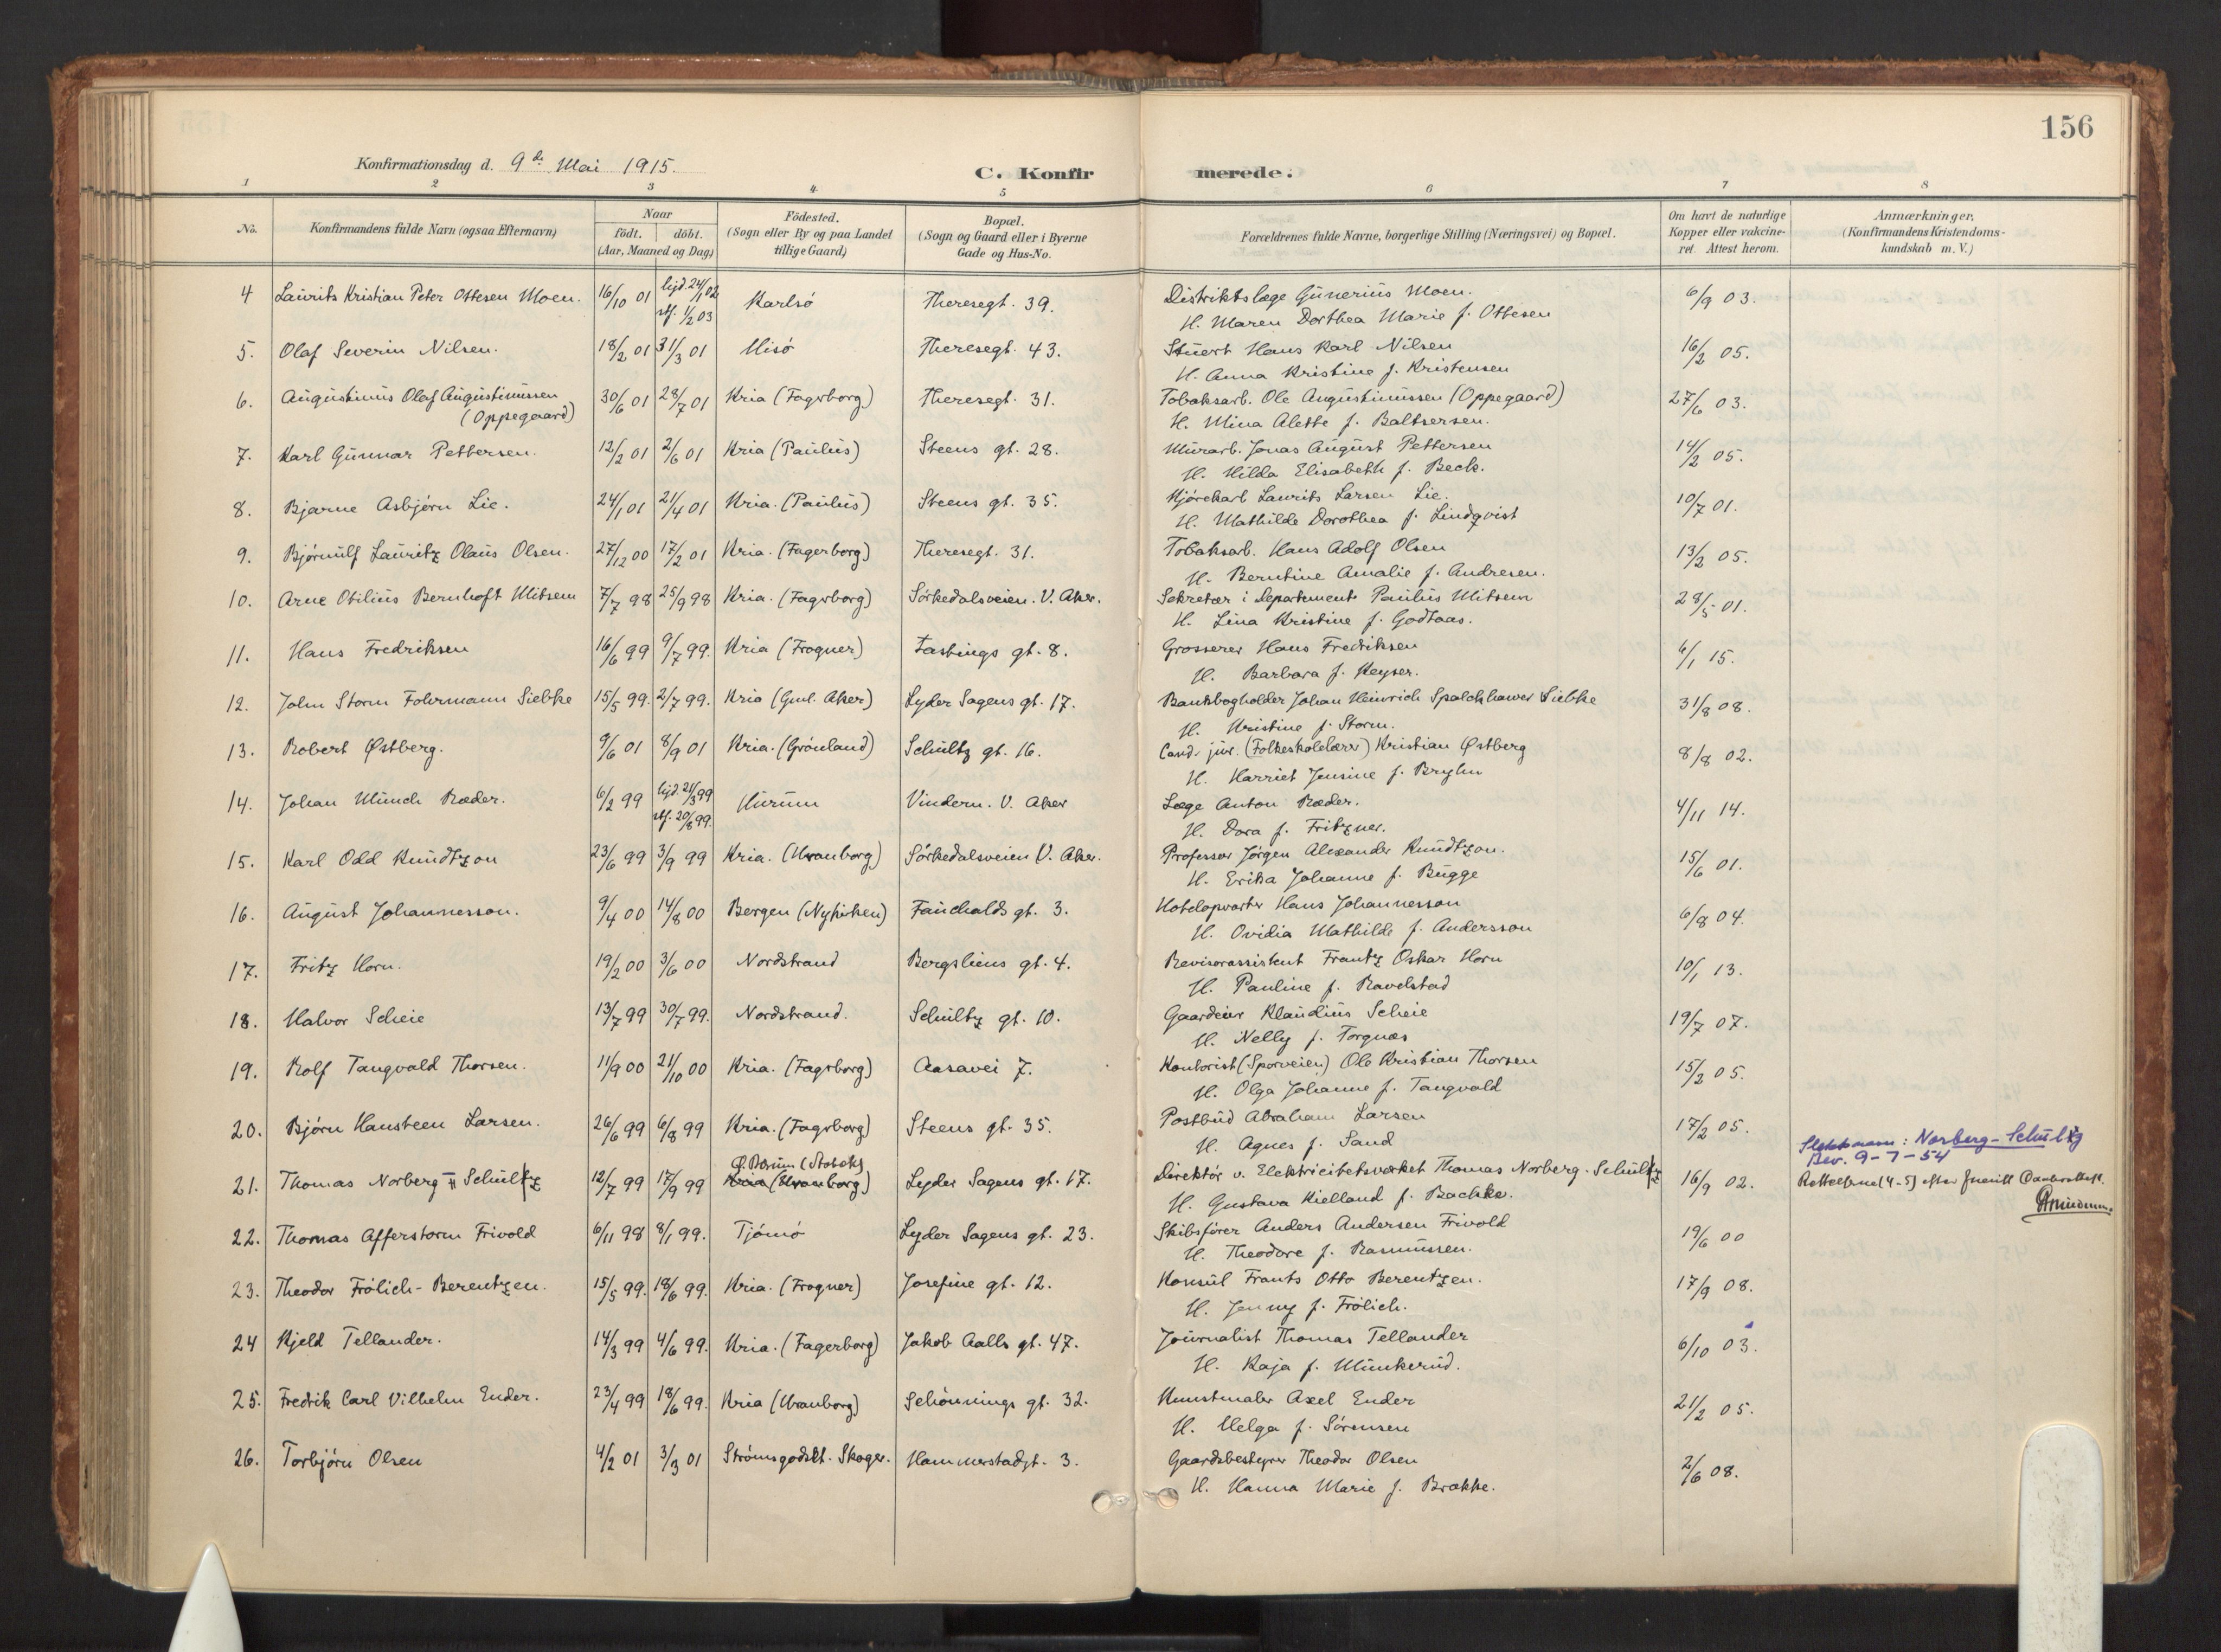 156
Konfirmationsdag d. 9de Mai 1915.
C. Konfirmerede.
1 2 3 4 5 6 7 8
No.
Konfirmandens fulde Navn (ogsaa Efternavn)
Naar
födt. döbt.
(Aar, Maaned og Dag)
Födested.
(Sogn eller By og paa Landet
tillige Gaard)
Bopæl.
(Sogn og Gaard eller i Byerne
Gade og Hus-No.
Forældrenes fulde Navne, borgerlige Stilling (Næringsvei) og Bopæl.
Om havt de naturlige
Kopper eller vakcine-
ret. Attest herom.
Anmærkninger.
(Konfirmandens Kristendoms-
kundskab m. V.)
4 Laurits Kristian Peter Ottesen Moen. 16/10 01 hjd. 24/1 02 stf. 1/2 03 Karlsö Theresegt. 39. Distriktslæge Gunerius Moen. 6/9 03.
H. Maren Dorthea Marie f. Ottesen
5. Olaf Severin Nilsen. 18/2 01 31/3 01 Misö Theresegt. 43. Stuert Hans Karl Nilsen 16/2 05.
H. Anna Kristine f. Kristensen
6. Augustinus Olaf Augustinussen 30/6 01 28/7 01 Kria (Fagrborg) Theresegt. 31. Tobaksarb. Ole Augustinussen (Oppegaard) 27/6 03.
(Oppegaard) H. Mina Alette f. Baltsersen.
7. Karl Gunnar Pettersen. 12/2 01 2/6 01 Kria (Paulus) Steens gt. 28. Murarb. Jonas August Pettersen 14/2 05.
H. Hilda Elisabeth f. Beck.
8. Bjarne Asbjørn Lie. 24/1 01 21/4 01 Kria. (Paulus) Steens gt. 35. Kjörekarl Laurits Larsen Lie. 10/7 01.
H. Mathilde Dorothea f. Lindqvist
9. Bjørnulf Lauritz Olaus Olsen. 27/12 00 17/2 01 Kria. (Fagerborg) Theresegt. 31. Tobaksarb. Hans Adolf Olsen 13/2 05.
H. Berntine Amalie f. Andresen.
10. Arne Otilius Bernhoft Mitsem 7/7 98 25/9 98 Kria. (Fagrborg) Sörkedalsveien. V. Aker. Sekretær i Departement Paulus Mitsem 28/5 01.
H. Lina Kristine f. Godtaas.
11. Hans Fredriksen 16/6 99 9/7 99. Kria (Frogner) Fastings gt. 8. Grosserer Hans Fredriksen 6/1 15.
H. Barbara f. Keyser.
12. John Storm Fohrmann Siebke 15/5 99. 2/7 99. Kria (Gml. Aker) Lyder Sagens gt. 17. Bankbogholder Johan Heinrich Spalckhawer Siebke 31/8 08.
H. Kristine f. Storm.
13. Robert Østberg. 9/6 01 8/9 01 Kria. (Grönland) Schultz gt. 16. Cand. jur. (Folkeskolelærer) Kristian Østberg 8/8 02.
H. Harriet Jensine f. Bryhn
14. Johan Munch Ræder. 6/2 99 hjd. 21/3 99 stf. 20/8 99. Hurum Vindern. V. Aker Læge Anton Ræder. 4/11 14.
H. Dora f. Fritzner.
15. Karl Odd Knudtzon 23/6 99 3/9 99 Kria. (Uranborg) Sörkedalsveien V. Aker. Professor Jörgen Alexander Knudtzon. 15/6 01.
H. Erika Johanne f. Bugge
16. August Johannesson. 9/4 00 14/8 00 Bergen (Nykirken) Fauchalds gt. 3. Hotelopvarter Hans Johannesson 6/8 04.
H. Ovidia Mathilde f. Andersson
17. Fritz Horn. 19/2 00 3/6 00 Nordstrand Bergsliens gt. 4. Revisorassistent Frantz Oskar Horn 10/1 13.
H. Pauline f. Ravelstad
18. Halvor Scheie 13/7 99 30/7 99. Nordstrand. Schultz gt. 10. Gaardeier Klaudius Scheie 19/7 07.
H. Nelly f. Torgnæs
19. Rolf Tangvald Thorsen. 11/9 00 21/10 00 Kria. (Fagrborg) Aasavei 7. Kontorist (Sporveien) Ole Kristian Thorsen 15/2 05.
H. Olga Johanne f. Tangvald
20. Bjørn Hansteen Larsen. 26/6 99 6/8 99 Kria. (Fagrborg) Steens gt. 35. Postbud Abraham Larsen 17/2 05.
H. Agnes f. Sand
Slektsnavn: Norberg-Schultz
Bev. 9-7-54
Ø. Bærum (Stabek)
21. Thomas Norberg = Schultz 12/7 99 17/9 99 Kria (Uranborg) Lyder Sagens gt. 17. Direktör v. Elektricitetsverket Thomas Norberg-Schultz 16/9 02. Rettelserne (4-5) efter
H. Gustava Kielland f. Backke.
22. Thomas Afferstorm Frivold 6/11 98 8/1 99. Tjömö Lyder Sagens gt. 23. Skibsförer Anders Andersen Frivold 19/6 00
H. Theodore f. Rasmussen.
23. Theodor Frölich-Berentzen. 15/5 99. 18/6 99. Kria. (Frogner) Josefine gt. 12. Konsul Frants Otto Berentzen. 17/9 08.
H. Jenny f. Frölich.
24 Kjeld Tellander. 14/3 99 4/6 99. Kria. (Fagerborg) Jakob Aalls gt. 47. Journalist Thomas Tellander 6/10 03.
H. Kaja f. Munkerud.
25. Fredrik Carl Vilhelm Ender. 23/4 99 18/6 99. Kria (Uranborg) Schönnings gt. 32. Kunstmaler Axel Ender 21/2 05.
H. Helga f. Sörensen
26. Torbjörn Olsen 4/2 01 3/3 01 Strömsgodslt. Skoger. Hammerstadgt. 3. Gaardsbestyrer Theodor Olsen 2/6 08.
H. Hanna Marie f. Brække.